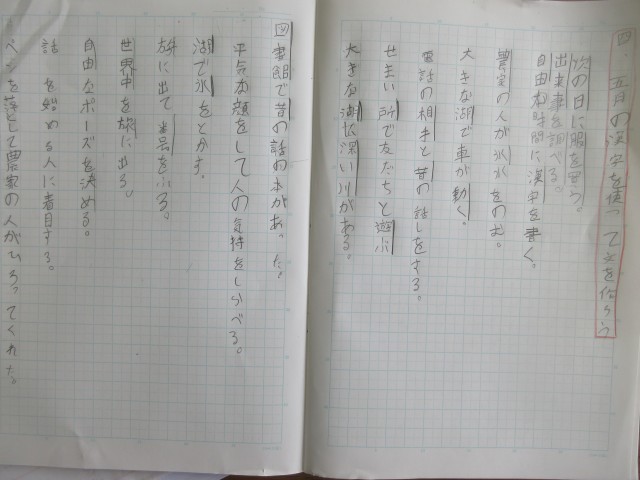 四、五月の漢字を使って文を作ろう
次の日に服を買う。
出来事を調べる。
自由な時間に漢字を書く。
農家の人が氷水をのむ。
大きな湖で車が動く。
電話の相手と昔の話しをする。
せまい所で友だちと遊ぶ
大きな湖に深い川がある。
四 書館で昔の話の本があった。
平気な顔をして人の気持をしらべる。
湖で氷をとかす。
旅に出て をふる。
世界中を旅に出る。
自由なポーズを決める。
話を始める人に着目する。
ペンを落として農家の人がひろってくれた。